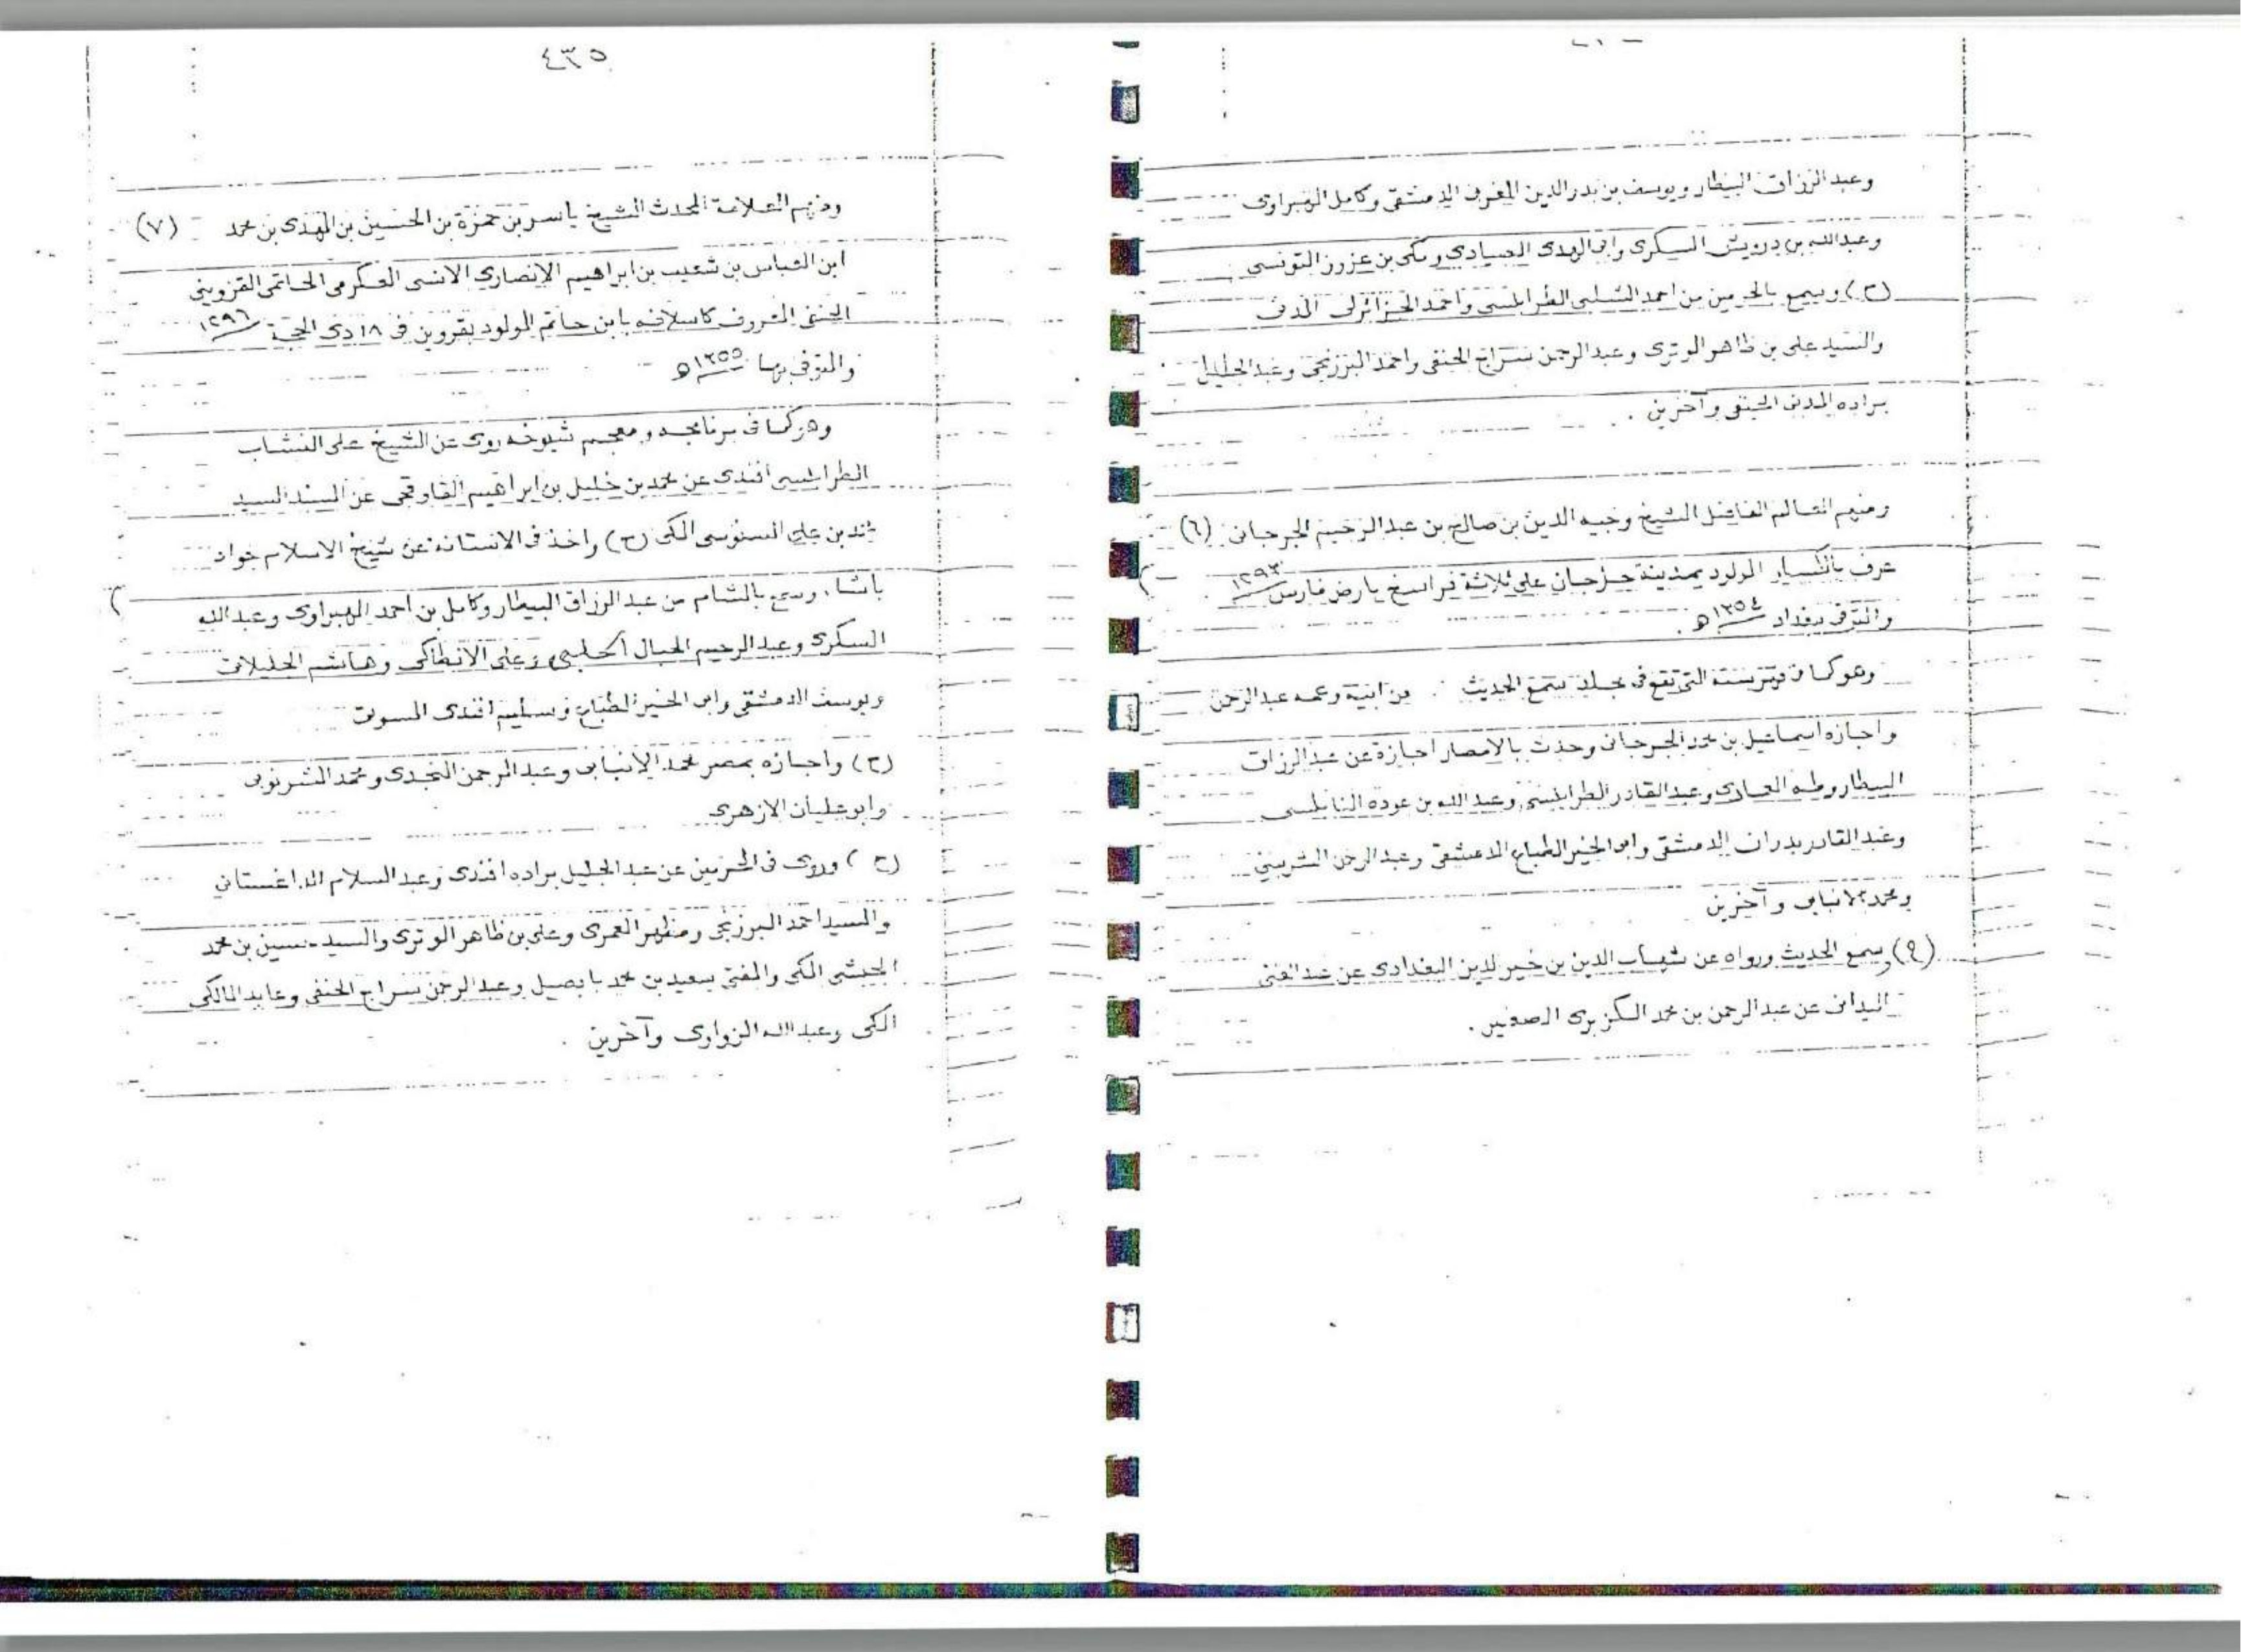 وعبد الرزاق البيطار ويوسف بن بدر الدين المغربى الدمشقى وكامل الهبراوى
وعبد الله بن درويش السكرى وابى الهدى الصيادى ومكى بن عزوز التونسى
(ح) وسمع بالحرمين من احمد الطرابلسى واحمد الجزائرلى المدنى
والسيد على بن ظاهر الوترى وعبد الرحمن سراج الحنفى واحمد البرزنجى وعبد الجليل
براده المدنى وآخرين .
ومنهم العالم الفاضل الشيخ وجيه الدين بن صالح بن عبد الرحيم الجرجانى (٦)
عرف المولود بمدينة جرجان على ثلاثة فراسخ بارض فارس ١٢٩٣
والمتوفى ببغداد ١٣٥٤ ه .
وهو كما فى التى تقع فى مجلد سمع الحديث من ابيه وعمه عبد الرحمن
واجازه اسماعيل بن محمد الجرجانى وحدث بالامصار اجازة عن عبد الرزاق
البيطار وطه وعبد القادر الطرابلسى وعبد الله بن عوده النابلسى
وعبد القادر بدران الدمشقى وابى الخير الطباع الدمشقى وعبد الرحمن الشربينى
ومحمد الانبابى وآخرين
(ح) وسمع الحديث ورواه عن شهاب الدين بن خير الدين البغدادى عن عبد الغنى
الميدانى عن عبد الرحمن بن محمد الكزبرى الصغير .
٤٣٥
ومنهم العلامة المحدث الشيخ ياسر بن حمزة بن الحسين بن المهدى بن محمد (٧)
ابن العباس بن شعيب بن ابراهيم الانصارى الانسى العكرمى الحاتمى القزوينى
الحنفى المعروف كاسلافه بابن حاتم المولود بقزوين فى ١٨ ذى الحجة ١٢٩٦
والمتوفى بها ١٣٥٥ ه
وهو كما فى برنامجه ومعجم شيوخه روى عن الشيخ على
الطرابلسى افندى عن محمد بن خليل بن ابراهيم القاوقجى عن المسند السيد
محمد بن على السنوسى المكى (ح) واخذ فى الاستانة عن شيخ الاسلام جواد
باشا ، وسمع بالشام من عبد الرزاق البيطار وكامل بن احمد الهبراوى وعبد الله
السكرى وعبد الرحيم الحبال الحلبى وعلى الانطاكى وهاشم
ويوسف الدمشقى وابى الخير الطباع وسليم افندى المسوتى
(ح) واجازه بمصر محمد الانبابى وعبد الرحمن ومحمد الشرنوبى
وابو عليان الازهرى
(ح) وروى فى الحرمين عن عبد الجليل براده افندى وعبد السلام الداغستانى
والسيد احمد البرزنجى ومظهر العمرى وعلى بن ظاهر الوترى والسيد حسين بن محمد
الحبشى المكى والمفتى سعيد بن محمد بابصيل وعبد الرحمن سراج الحنفى وعابد المالكى
المكى وعبد الله الزواوى وآخرين .